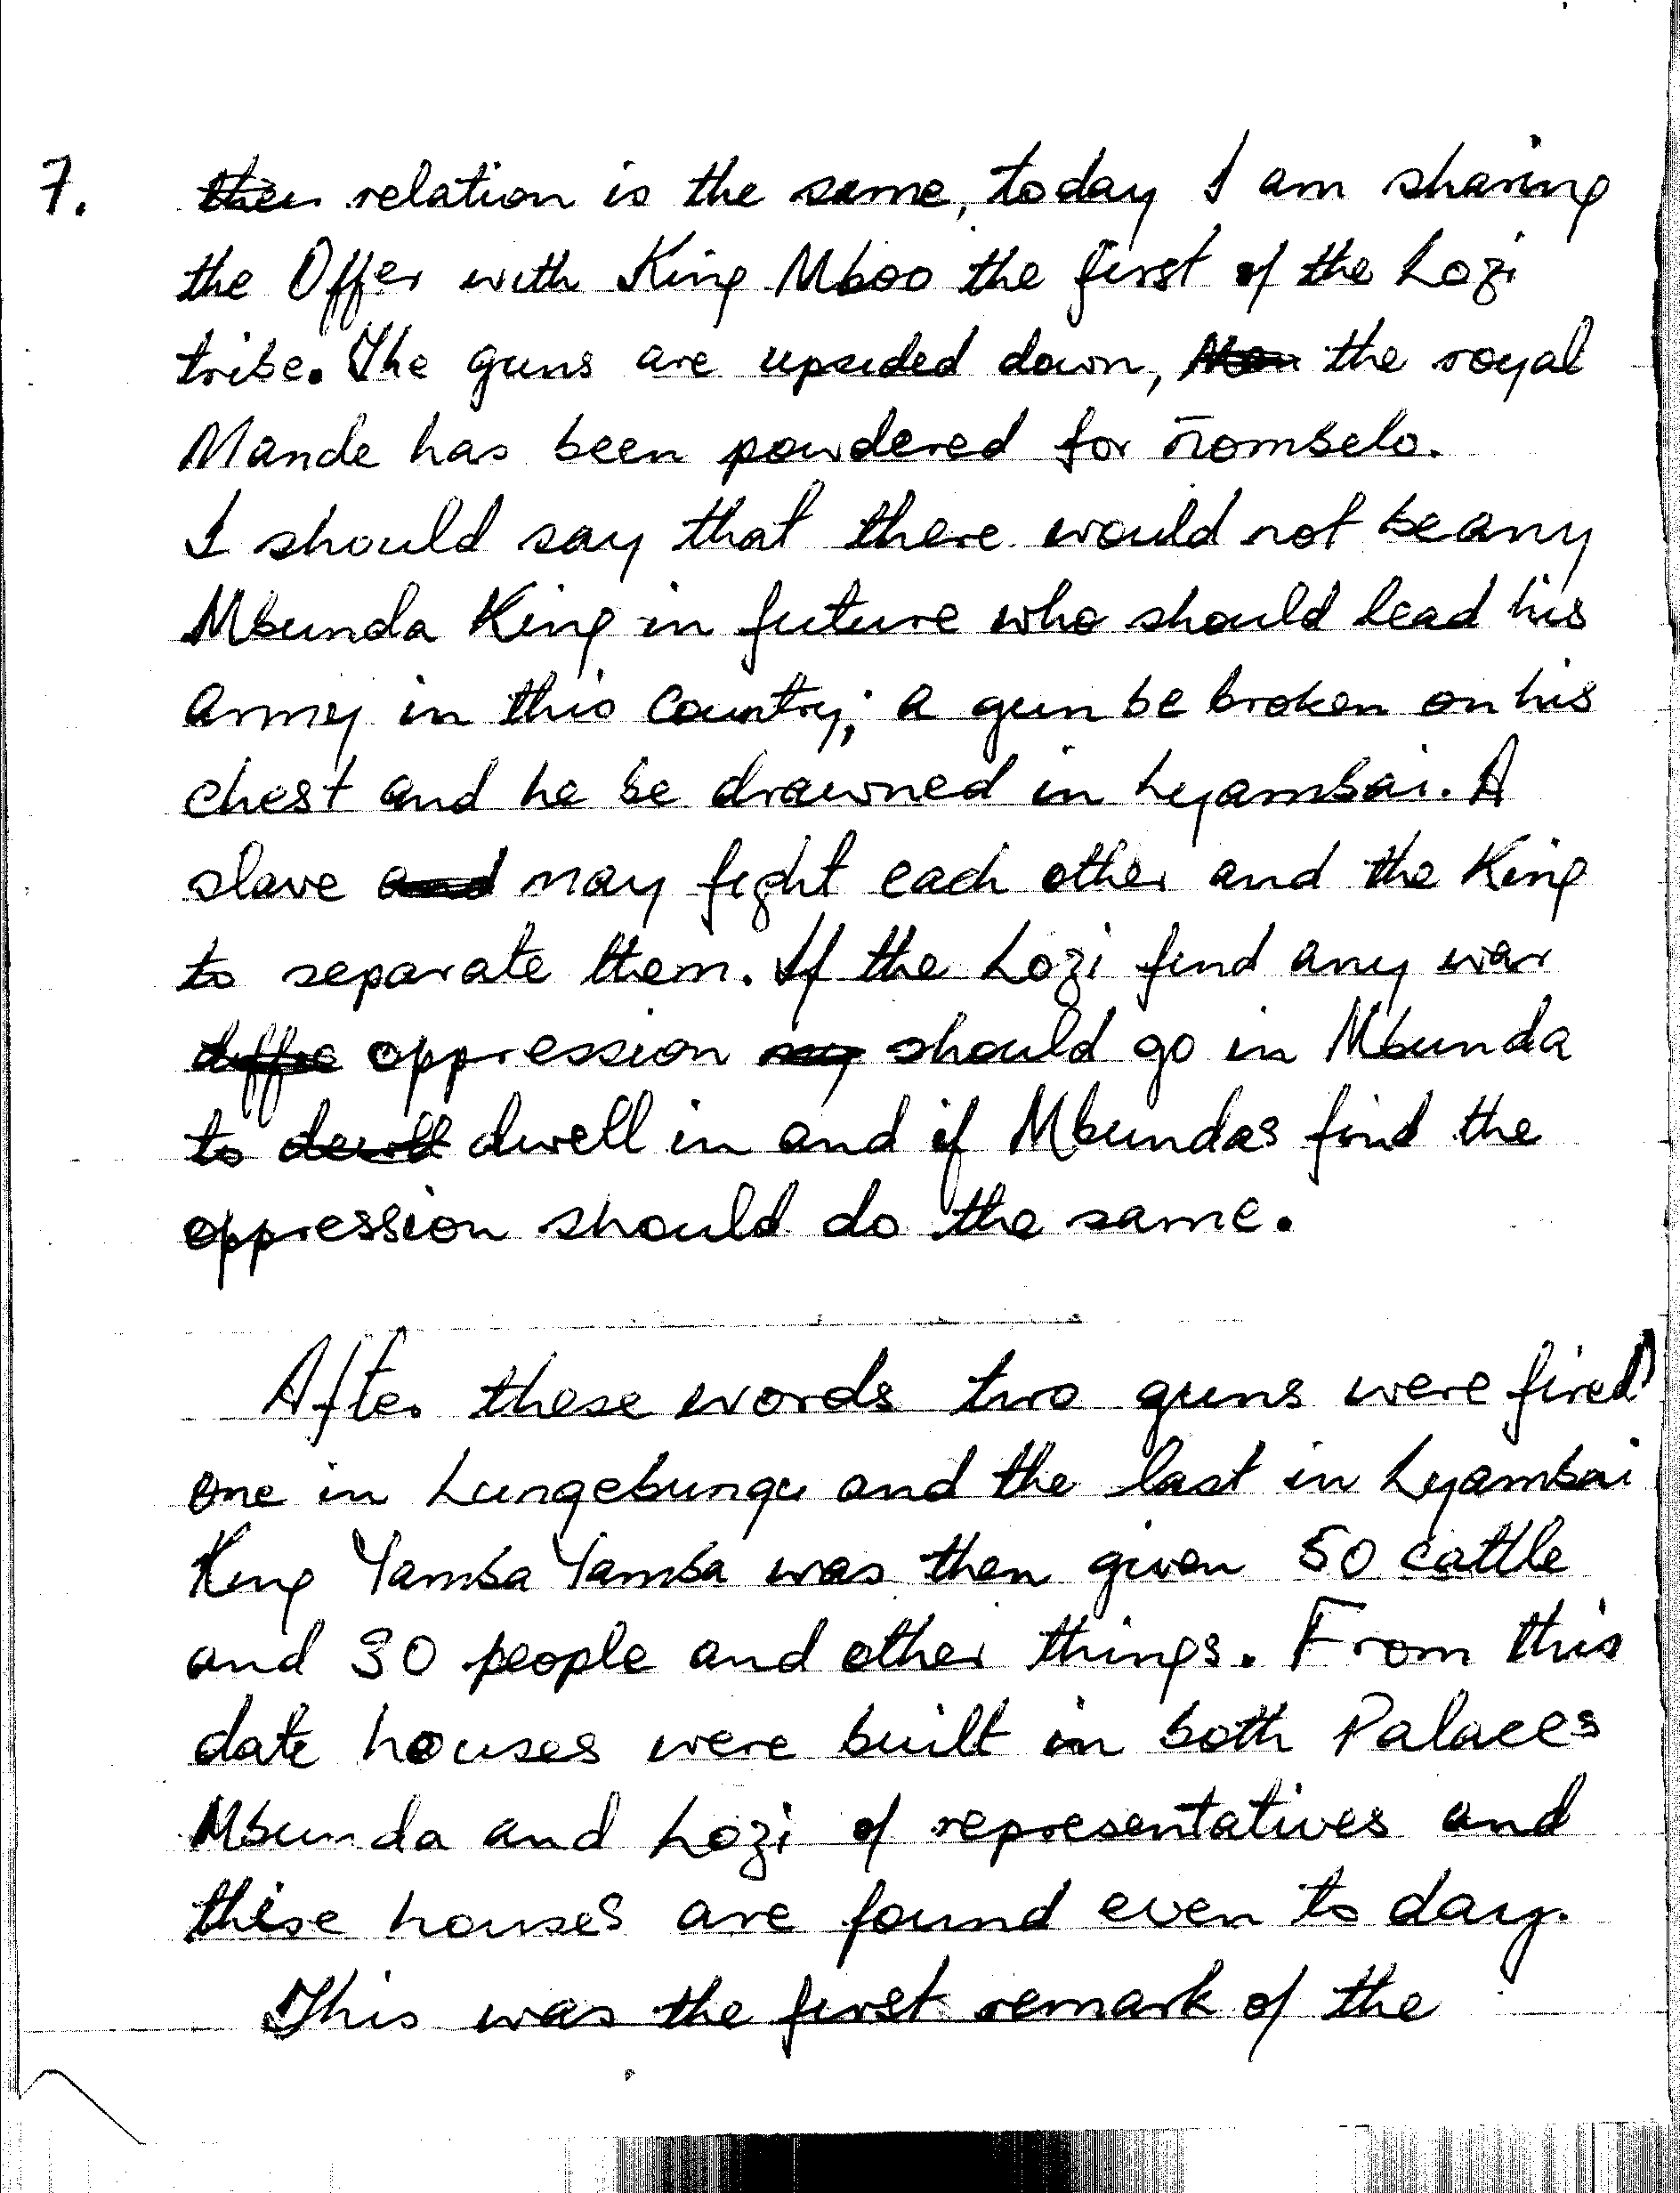 7. ~~their~~ relation is the same, today I am sharing
the Offer with King Mboo the first of the Lozi
tribe. The guns are upsided down, the royal
Mande has been powdered for ñombelo.
I should say that there would not be any
Mbunda King in future who should lead his
army in this Country; a gun be broken on his
chest and he be drawned in Lyambai. A
slave ~~and~~ may fight each other and the King
to separate them. If the Lozi find any war
~~diffre~~ oppression ~~may~~ should go in Mbunda
to ~~dewll~~ dwell in and if Mbundas find the
oppression should do the same.
After these words two guns were fired
one in Lungebungu and the last in Lyambai
King Yamba Yamba was then given 50 cattle
and 30 people and other things. From this
date houses were built in both Palaces
Mbunda and Lozi of representatives and
these houses are found even to day.
This was the first remark of the